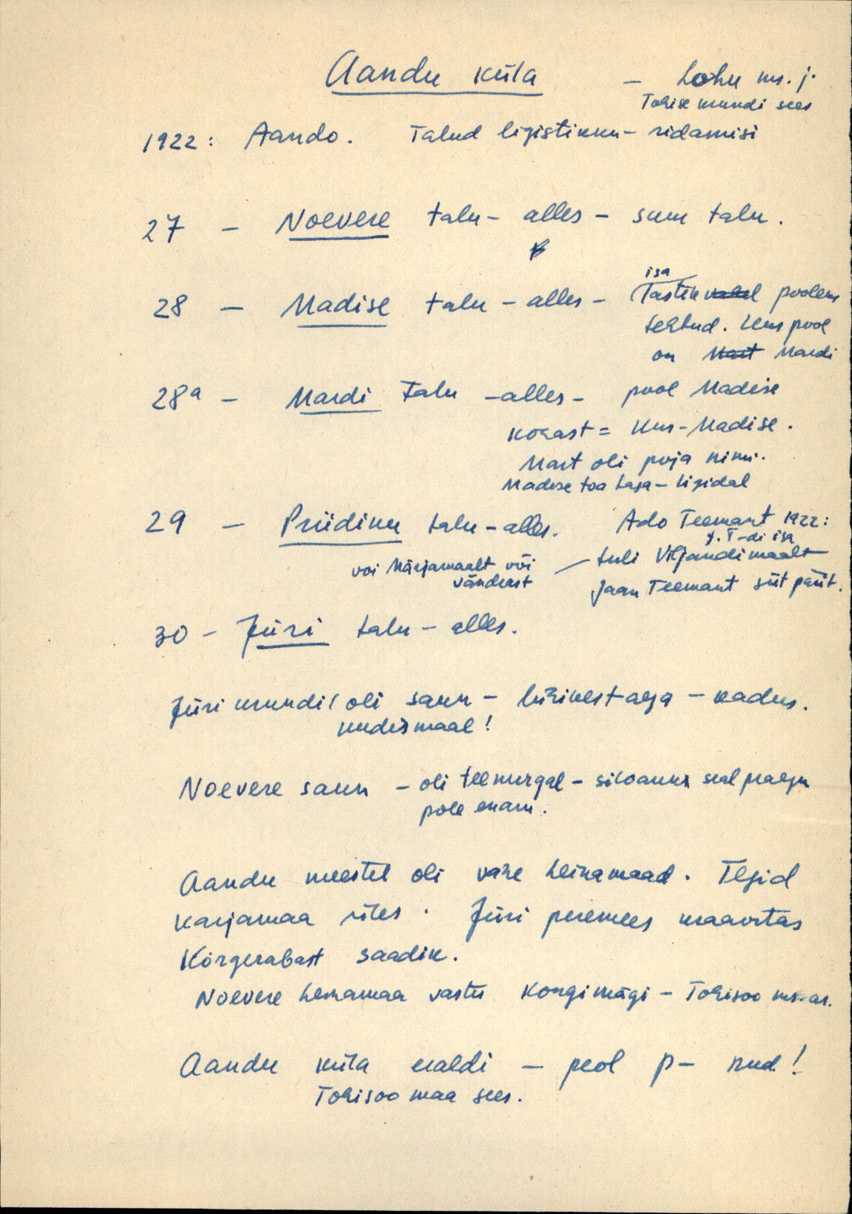 Aandu küla – Lohu ms. j.
Tohise mundi sees
1922: Aando. Talud ligistikku – ridamisi
27 – Noevere talu – alles – suur talu.
28 – Madise talu – alles – isa poolens
Teine pool
on Mart Mardi
28a – Mardi talu – alles – pool Madise
kohast = Uus-Madise.
Mart oli poja nimi.
Madise toa taga – ligidal
29 – Priidiku talu – alles. Ado Teemant 1922:
J. T-di isa
voi Märjamaalt või – tuli Viljandimaalt
vändrast Jaan Teemant siit pärit.
30 – Jüri talu – alles.
Jüri nurmel oli saun – lühikest aega – kadus.
uudismaal!
Noevere saun – oli teenurgal – siloauk seal praegu
pole enam.
Aandu meestel oli vähe heinamaad. Tegid
karjamaa üles. Jüri peremees kraavitas
Kõrgerabast saadik.
Noevere heinamaa vastu Kongimägi – Tohisoo ms. ar.
Aandu küla eraldi – peol p – nud!
Tohisoo maa sees.